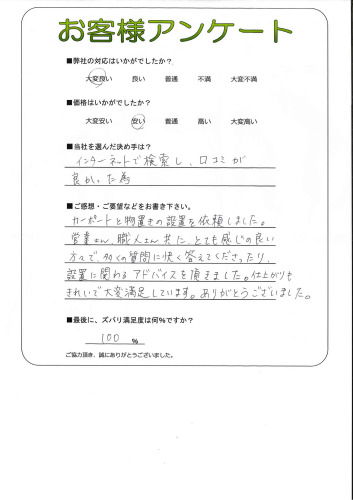 お客様アンケート
■弊社の対応はいかがでしたか?
大変良い 良い 普通 不満 大変不満
■価格はいかがでしたか?
大変安い 安い 普通 高い 大変高い
■当社を選んだ決め手は?
インターネットで検索し、口コミが
良かった為
■ご感想・ご要望などをお書き下さい。
カーポートと物置きの設置を依頼しました。
営業さん、職人さん共に、とても感じの良い
方々で、多くの質問に快く答えてくださったり、
設置に関わるアドバイスを頂きました。仕上がりも
きれいで大変満足しています。ありがとうございました。
■最後に、ズバリ満足度は何%ですか?
100 %
ご協力頂き、誠にありがとうございました。